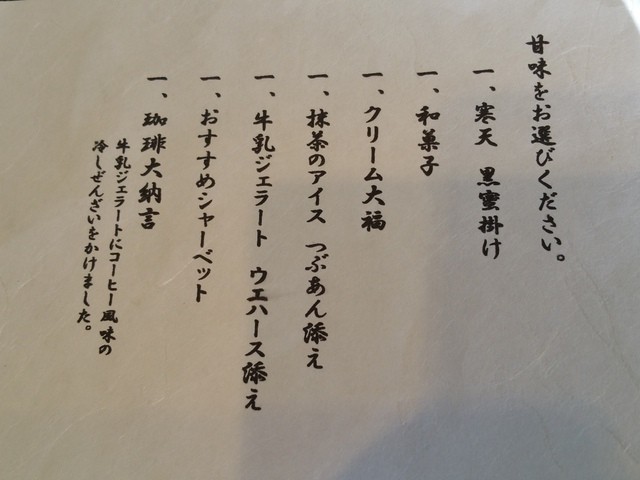 甘味をお選びください。
一、寒天　黒蜜掛け
一、和菓子
一、クリーム大福
一、抹茶のアイス　つぶあん添え
一、牛乳ジェラート　ウエハース添え
一、おすすめシャーベット
一、珈琲大納言
牛乳ジェラートにコーヒー風味の
冷しぜんざいをかけました。